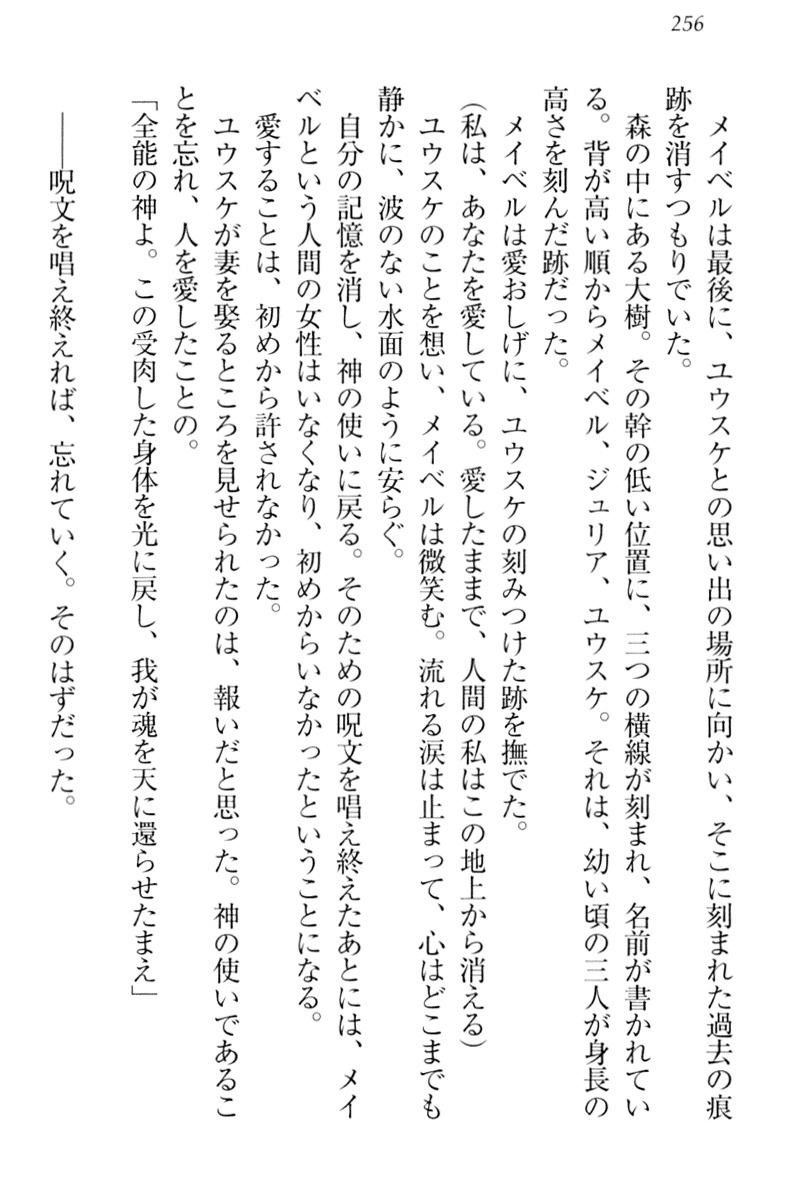 256
メイベルは最後に、ユウスケとの思い出の場所に向かい、そこに刻まれた過去の痕
跡を消すつもりでいた。
森の中にある大樹。その幹の低い位置に、三つの横線が刻まれ、名前が書かれてい
る。背が高い順からメイベル、ジュリア、ユウスケ。それは、幼い頃の三人が身長の
高さを刻んだ跡だった。
メイベルは愛おしげに、ユウスケの刻みつけた跡を撫でた。
(私は、あなたを愛している。愛したままで、人間の私はこの地上から消える)
ユウスケのことを想い、メイベルは微笑む。流れる涙は止まって、心はどこまでも
静かに、波のない水面のように安らぐ。
自分の記憶を消し、神の使いに戻る。そのための呪文を唱え終えたあとには、メイ
ベルという人間の女性はいなくなり、初めからいなかったということになる。
愛することは、初めから許されなかった。
ユウスケが妻を娶るところを見せられたのは、報いだと思った。神の使いであるこ
とを忘れ、人を愛したことの。
「全能の神よ。この受肉した身体を光に戻し、我が魂を天に還らせたまえ」
――呪文を唱え終えれば、忘れていく。そのはずだった。